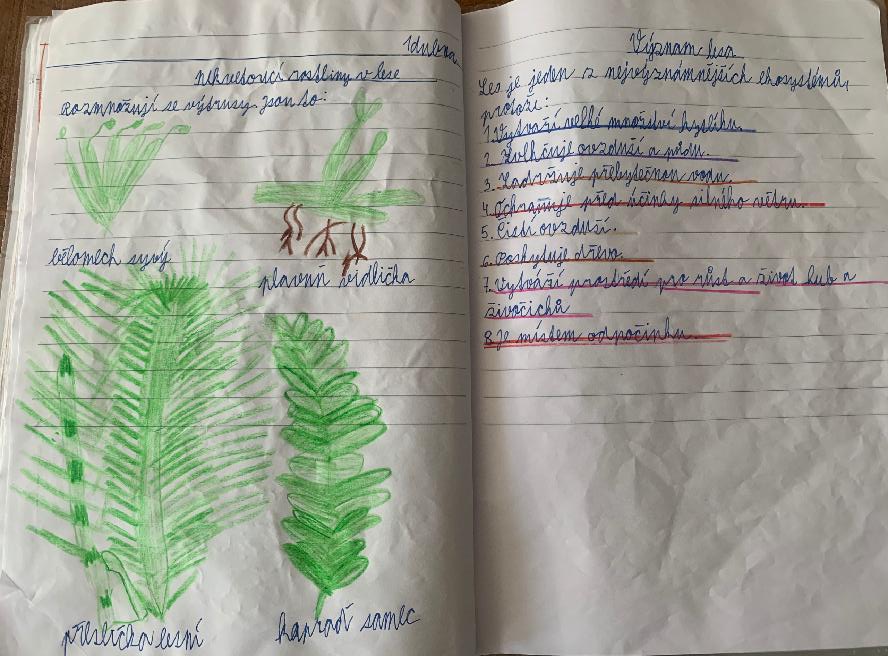 1dubna
Nekvetoucí rostliny v lese
Rozmnožují se výtrusy. Jsou to:
bělomech sivý
plavuň vidlička
přeslička lesní
kapraď samec
Význam lesa
Les je jeden z nejvýznámnějších ekosystémů,
protože:
1. Vytváří velké množství kyslíku.
2. Zvlhčuje ovzduší a půdu.
3. Zadržuje přebytečnou vodu.
4. Ochraňuje před účinky silného větru.
5. Čistí ovzduší.
6. Poskytuje dřevo.
7. Vytváří prostředí pro růst a život hub a
živočichů
8. Je místem odpočinku.